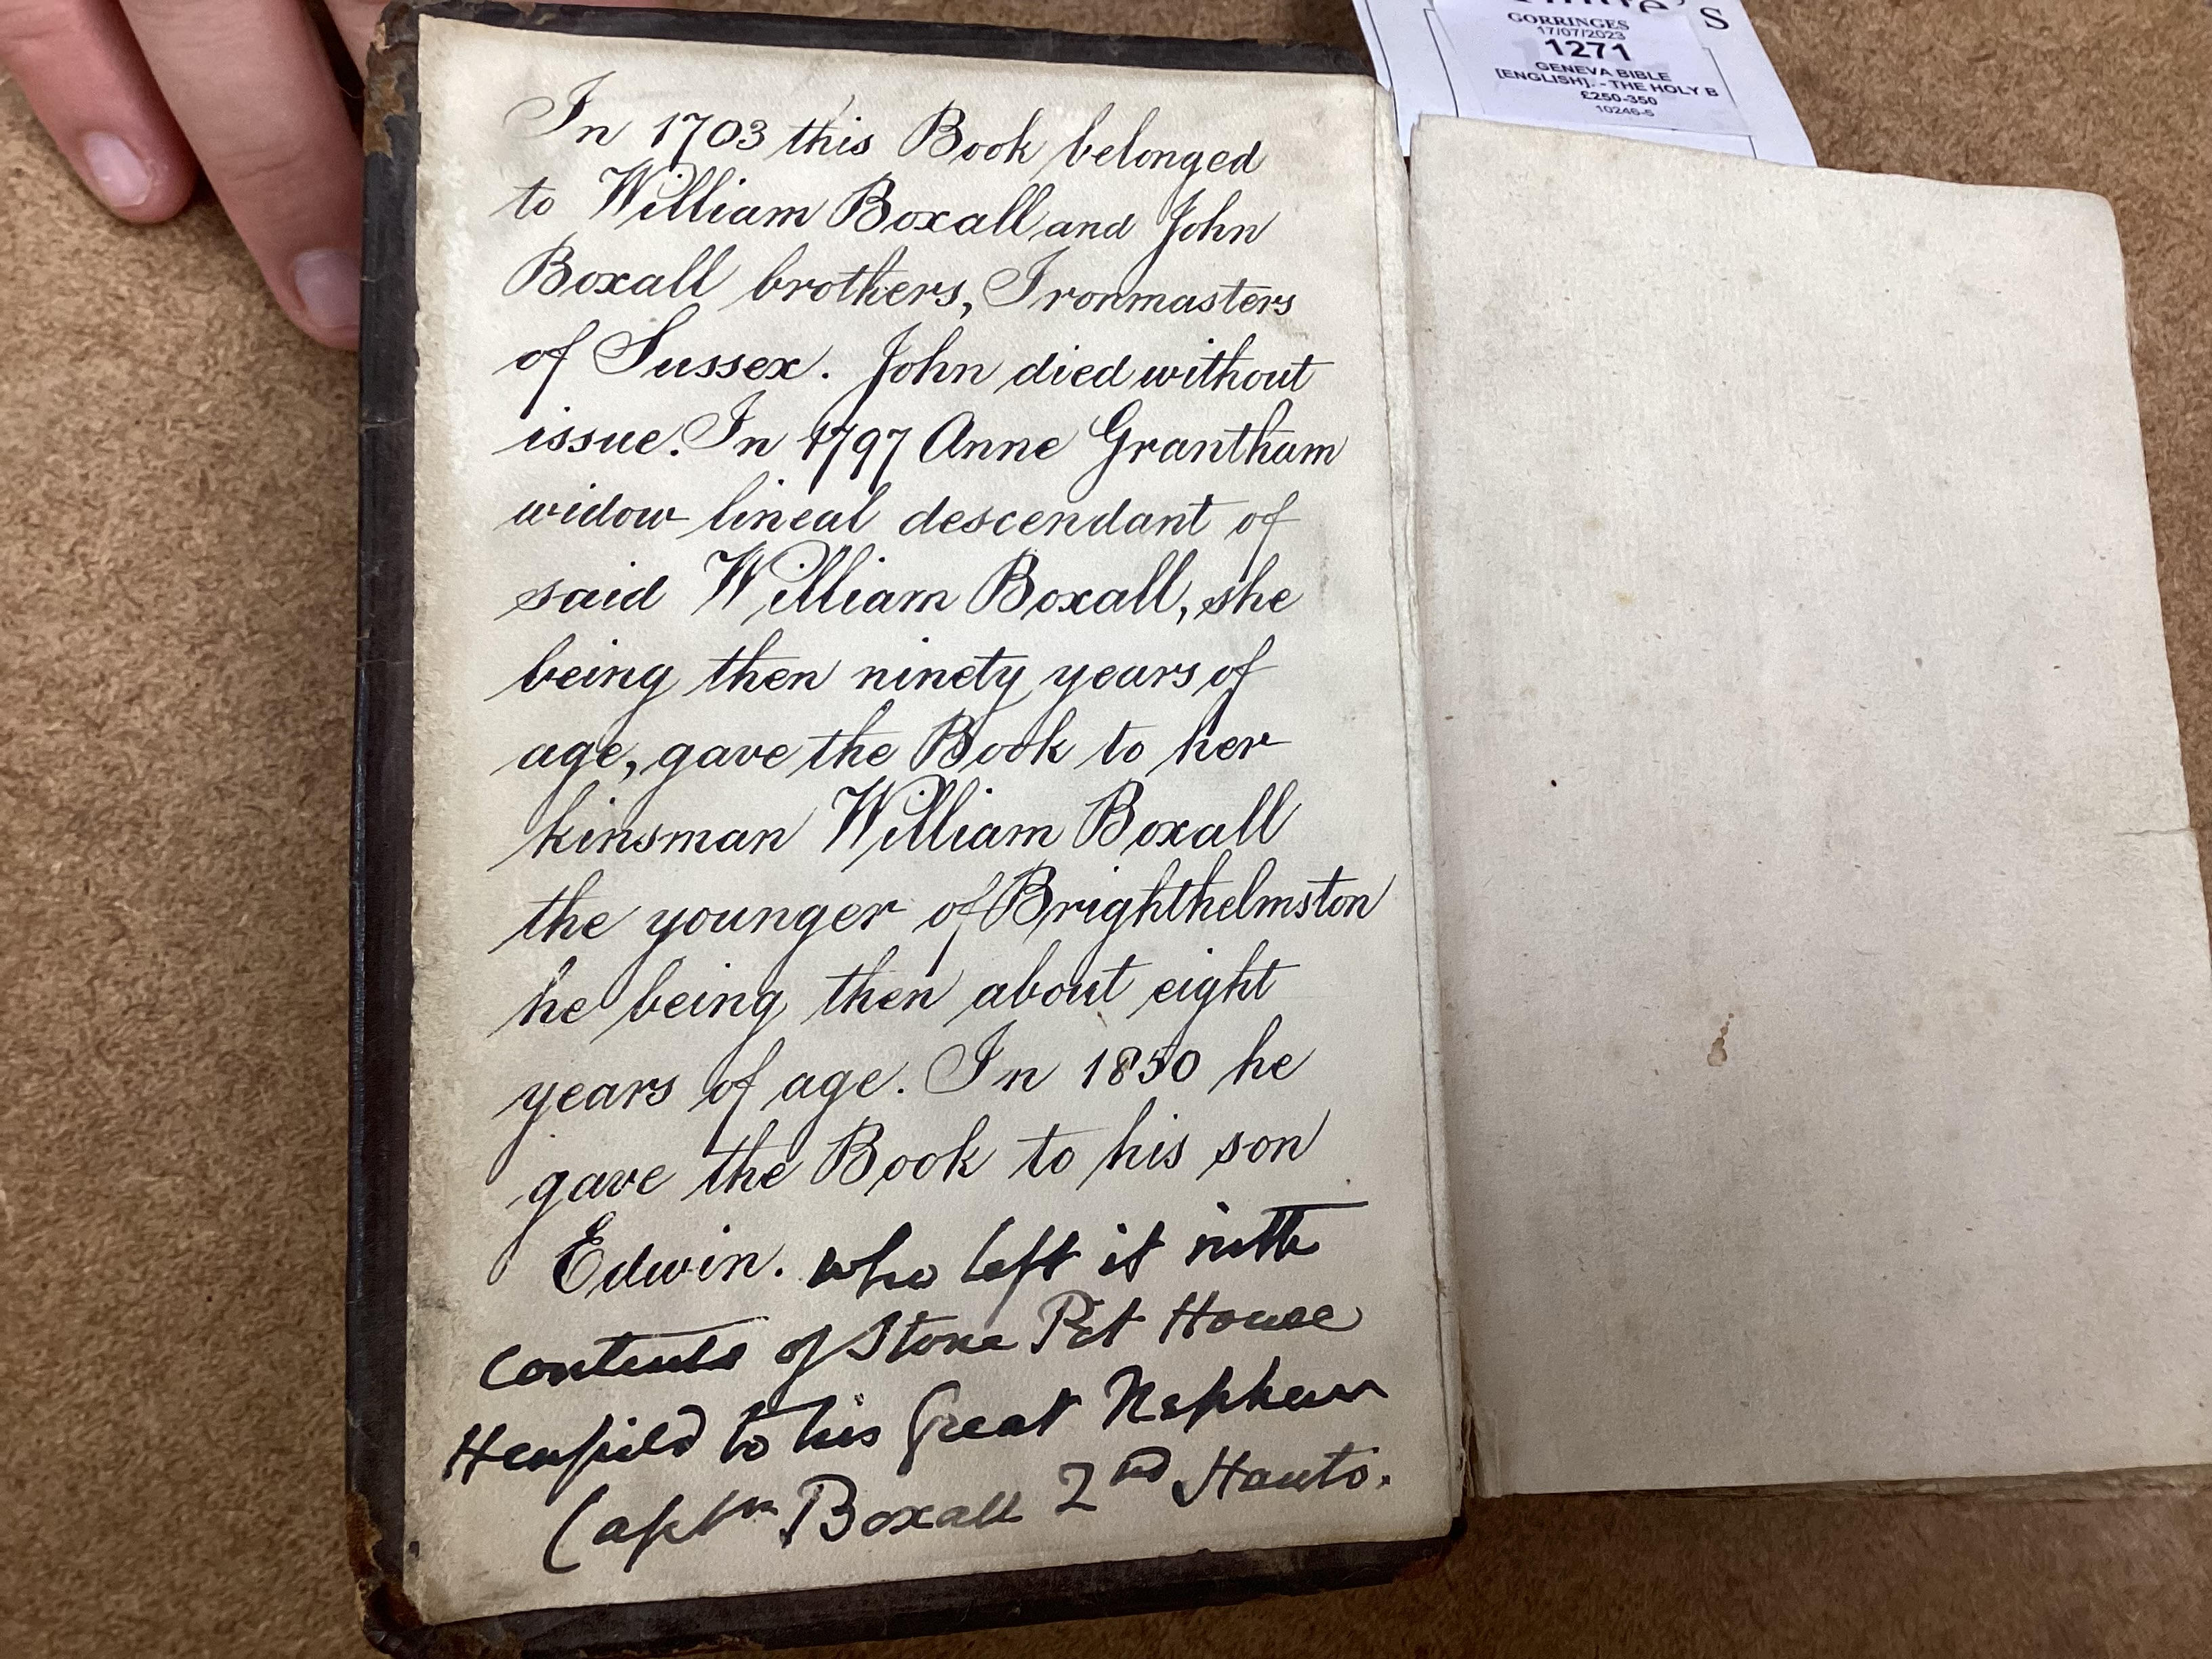 GORRINGES
17/07/2023
1271
GENEVA BIBLE
[ENGLISH]. - THE HOLY B
£250-350
10246-5
In 1703 this Book belonged
to William Boxall and John
Boxall brothers, Ironmasters
of Sussex. John died without
issue. In 1797 Anne Grantham
widow lineal descendant of
said William Boxall, she
being then ninety years of
age, gave the Book to her
kinsman William Boxall
the younger of Brighthelmston
he being then about eight
years of age. In 1850 he
gave the Book to his son
Edwin. who left it with
contents of Stone Pit House
Henfield to his Great Nephew
Captn Boxall 2nd Hants.